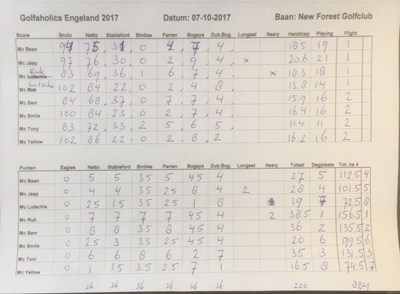 Golfaholics Engeland 2017 Datum: 07-10-2017 Baan: New Forest Golfclub
Score Bruto Netto Stableford Birdies Parren Bogeys Dub.Bog. Longest Neary Handicap Playing Flight
Mc Bean 94 75 31 0 4 7 18.5 19 1
Mc Jeep 97 76 30 0 2 9 4 x 20.6 21 1
Mc Lutschie 83 69 36 1 6 7 4 x 18.3 18 1
Mc Ruk 102 84 22 0 2 4 8 1
Mc Sem 84 68 37 0 7 7 4 15.9 16 2
Mc Smile 100 84 23 0 2 7 4 16.4 16 2
Mc Tony 83 72 33 2 5 6 5 11.4 11 2
Mc Yellow 102 86 22 0 2 8 2 16.2 16 2
Punten Eagles Netto Stableford Birdies Parren Bogeys Dub.Bog. Longest Neary Totaal Dagplaats Tot. na 4
Mc Bean 0 5 5 3.5 5 4.5 4 27 5 112.5 4
Mc Jeep 0 4 4 3.5 2.5 8 4 2 28 4 101.5 5
Mc Lutschie 0 2.5 1.5 3.5 2.5 1 8 19 7 72.5 8
Mc Ruk 0 7 7 7 7 4.5 4 2 38.5 1 156.5 1
Mc Sem 0 8 8 3.5 8 4.5 4 36 2 135.5 2
Mc Smile 0 2.5 3 3.5 2.5 4.5 4 20 6 99.5 6
Mc Toni 0 6 6 8 6 2 7 35 3 131.5 3
Mc Yellow 0 1 1.5 3.5 2.5 7 1 16.5 8 74.5 7
36 36 36 36 36 36 220